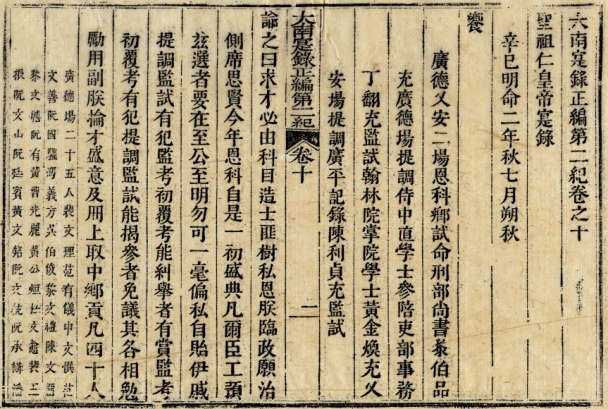 大南寔錄正編第二紀卷之十
聖祖仁皇帝寔錄
辛巳明命二年秋七月朔秋
饗
廣德乂安二場恩科鄉試命刑部尚書黎伯品
充廣德場提調侍中直學士參陪吏部事務
丁翻充監試翰林院掌院學士黃金煥充乂
安場提調廣平記錄陳利貞充監試
大南寔錄正編第二紀 卷十 二
諭之曰求才必由科目造士匪樹私恩朕臨政願治
側席思賢今年恩科自是一初盛典凡爾臣工預
茲選者要在至公至明勿可一毫偏私自貽伊戚
提調監試有犯監考初覆考能糾舉者有賞監考
初覆考有犯提調監試能揭參者免議其各相勉
勵用副朕掄才盛意及冊上取中鄉貢凡四十人
廣德場二十五人裴文理范有儀申文
文善阮國義方吳伯黎文禮陳文
黎文阮有黃曾光麗黃公文
阮文山阮賓黃文銘阮文阮承講